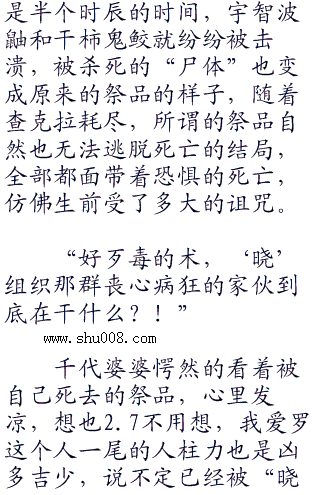 是半个时辰的时间，宇智波
鼬和干柿鬼鲛就纷纷被击
溃，被杀死的“尸体”也变
成原来的祭品的样子，随着
查克拉耗尽，所谓的祭品自
然也无法逃脱死亡的结局，
全部都面带着恐惧的死亡，
仿佛生前受了多大的诅咒。
“好歹毒的术，‘晓’
组织那群丧心病狂的家伙到
底在干什么？！”
www.shu008.com
千代婆婆愕然的看着被
自己死去的祭品，心里发
凉，想也2.7不用想，我爱罗
这个人一尾的人柱力也是凶
多吉少，说不定已经被“晓